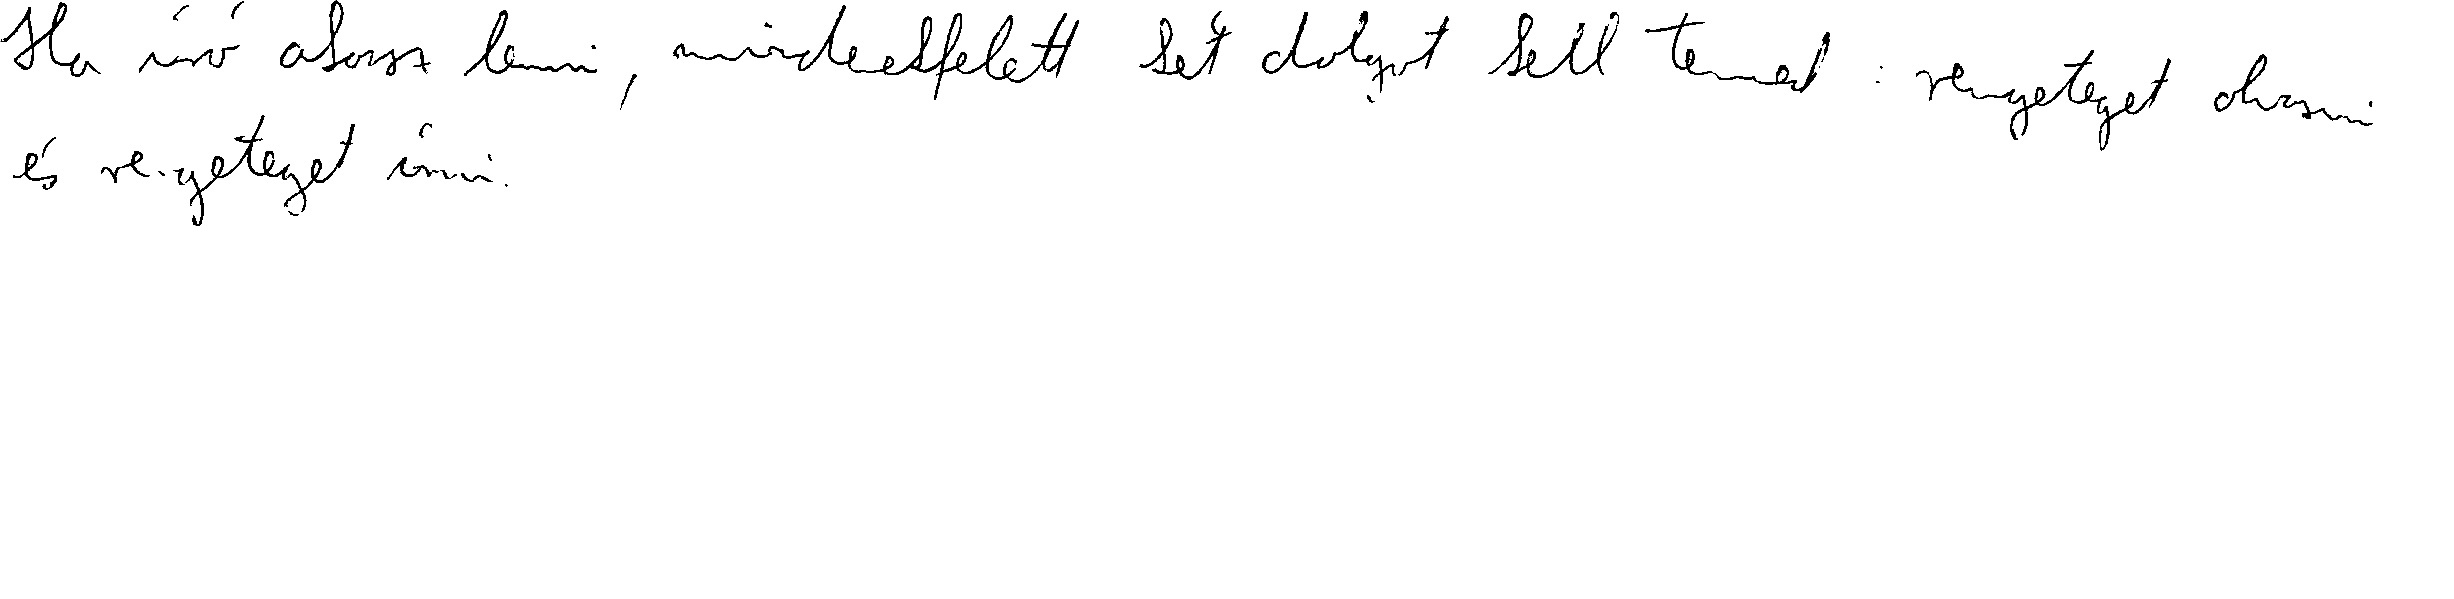 Ha író akarsz lenni, mindenekfelett két dolgot kell tenned : rengeteget olvasni
és rengeteget írni.